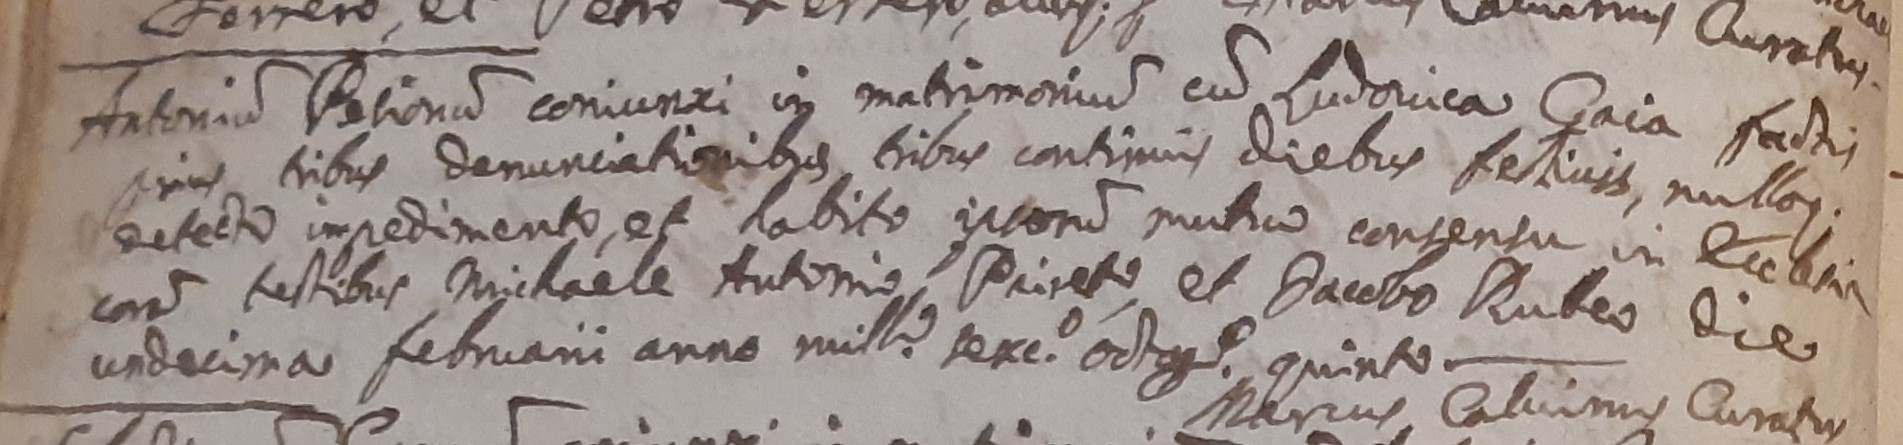 et Petro Curatus
Antoniũ Petionũ coniunxi in matrimoniũ cũ Ludovica Gaia factis
prius tribus denunciationibus tribus continuis diebus festivis, nulloq;
detecto impedimento, et habito ipsorũ mutuo consensu in Ecclesia
corã testibus Michaele Antonio Paireto, et Jacobo Rubeo die
undecima februarii anno mill.º sexc.º octog.º quinto
Marcus Calvinus Curatus